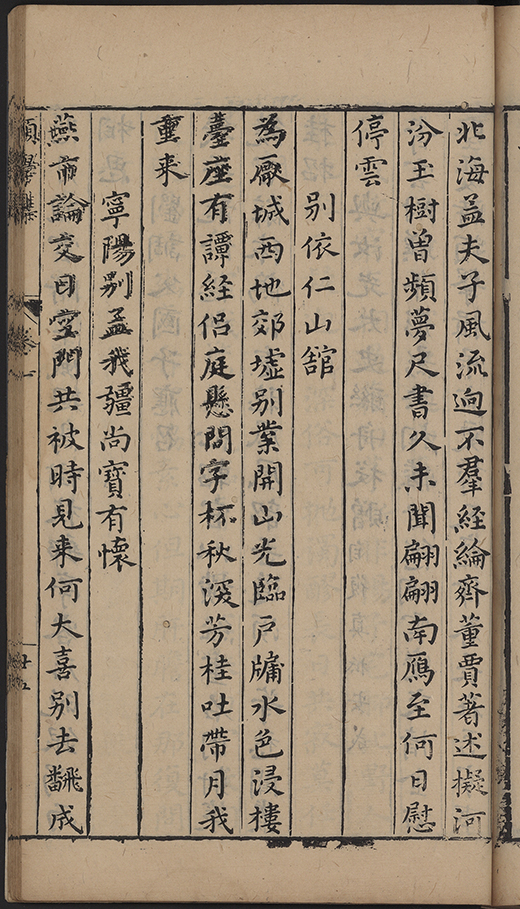 北海孟夫子風流迥不羣經綸齊董賈著述擬河
汾玉樹曾頻夢尺書久未聞翩翩南鴈至何日慰
停雲
別依仁山舘
為厭城西地郊墟別業開山光臨戶牖水色浸樓
臺座有譚經侣庭懸問字杯秋深芳桂吐帶月我
重来
寧陽別孟我疆尚寶有懷
燕市論交日空門共被時見来何大喜別去飜成
卷一
廿五